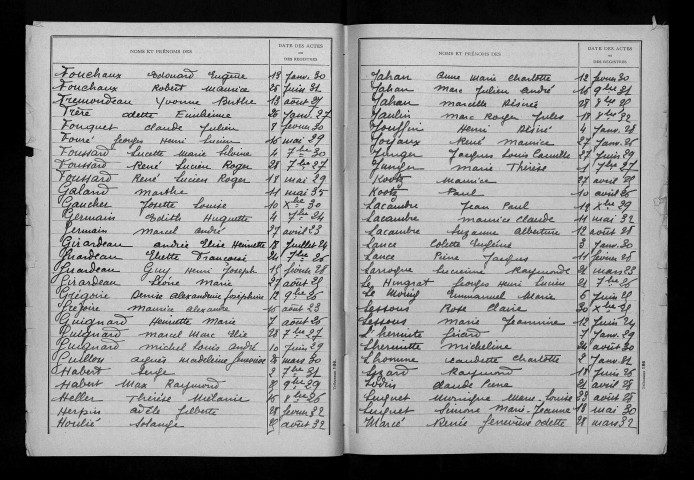 NOMS ET PRÉNOMS DES
DATE DES ACTES
OU
DES REGISTRES
Fouchaux Edouard Eugène 19 Janv. 30
Fouchaux Robert Maurice 25 Juin 31
Fremondeau Yvonne Berthe 13 août 27
Frère Odette Emilienne 26 Janv. 27
Fouquet Claude Julien 7 février 30
Fouré Georges Henri Lucien 16 mai 29
Foussard Lucette Marie 4 7bre 30
Foussard René Lucien Roger 28 7bre 27
Foussard René Lucien Roger 18 mai 29
Galand Marthe 11 mai 35
Gaucher Josette Louise 10 Xbre 30
Germain Edith Huguette 4 7bre 24
Germain Marcel André 27 avril 23
Girardeau Andrée Elise Henriette 18 Juillet 24
Girardeau Ginette Françoise 24 7bre
Girardeau Guy Henri Joseph 15 février 28
Girardeau Léone Marie 27 août 29
Grégoire Denise Alexandrine Joséphine 12 9bre 26
Grégoire Maurice Alexandre 16 août 23
Guignard Henriette Marie 7 août 26
Guignard Marcel Marc Elie 24 7bre 27
Guignard Michel Louis André 10 Juin 29
Guillon Agnès Madeleine Genviève 26 mars 30
Habert Serge 2 7bre 31
Habert Max Raymond 9bre 29
Heller Thérèse Mélanie 16 8bre 26
Herpin Adèle Gilberte 28 févr. 32
Houlié Solange 20 août 32
NOMS ET PRÉNOMS DES
DATE DES ACTES
OU
DES REGISTRES
Jahan Anne Marie Charlotte 12 févr. 30
Jahan Marc Julien André 16 9bre 31
Jahan Marcelle Désirée 28 8bre 20
Jaulin Marc Roger Jules 18 8bre 32
Jouffin Henri Désiré 4 Janv. 28
Joyaux René Maurice 27 Janv. 26
Junger Jacques Louis Camille 27 Juin 29
Junger Marie Thérèse 1 7bre 27
Kootz Maurice 27 avril 28
Kootz Paul 10 avril 26
Lacambre Jean Paul 19 Xbre 29
Lacambre Maurice Claude 11 mai 32
Lacambre Suzanne Albertine 12 août 28
Lance Colette Eugénie 3 Janv. 30
Lance Pierre Jacques 11 févr. 26
Larvogne Lucienne Raymonde 21 mars 23
Le Hingrat Georges Henri Lucien 21 7bre 26
Le Emmanuel Marie 6 Juin 29
Lessons Rose Claire 30 Xbre 29
Lessons Marie Jeannine 12 Juin 24
Lhermitte Gérard 7 Janv. 27
Lhermitte Micheline 24 avril 28
Lhomme Claudette Charlotte 8 Janv. 31
Lizard Raymond 18 Juin 26
Lodis Claude Pierre 21 avril 28
Luignet Monique Marie Louise 23 août 28
Luignet Simone Marie Jeanne 18 mai 30
Marcé Renée Geneviève Odette 28 mars 32